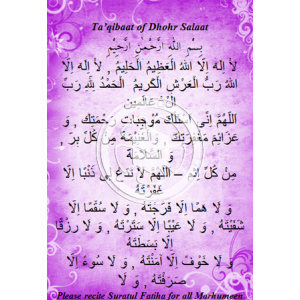 Ta'qibaat of Dhohr Salaat
بِسْمِ اللهِ الرَّحْمٰنِ الرَّحِيْمِ
لَا إِلٰهَ إِلَّا اللهُ الْعَظِيْمُ الْحَلِيْمُ لَا إِلٰهَ إِلَّا
اللهُ رَبُّ الْعَرْشِ الْكَرِيْمُ الْحَمْدُ لِلّٰهِ رَبِّ
الْعَالَمِيْنَ
اَللّٰهُمَّ إِنِّيْ أَسْئَلُكَ مُوْجِبَاتِ رَحْمَتِكَ , وَ
عَزَائِمَ مَغْفِرَتِكَ , وَالْغَنِيْمَةَ مِنْ كُلِّ بِرٍّ ,
وَ السَّلَامَةَ
مِنْ كُلِّ إِثْمٍ – اَللّٰهُمَّ لَا تَدَعْ لِيْ ذَنْبًا إِلَّا
غَفَرْتَهُ
وَ لَا هَمًّا إِلَّا فَرَّجْتَهُ , وَ لَا سُقْمًا إِلَّا
شَفَيْتَهُ , وَ لَا عَيْبًا إِلَّا سَتَرْتَهُ , وَ لَا رِزْقًا
إِلَّا بَسَطْتَهُ
وَ لَا خَوْفًا إِلَّا آمَنْتَهُ , وَ لَا سُوْءً إِلَّا
صَرَفْتَهُ , وَ لَا
Please recite Suratul Fatiha for all Marhumeen